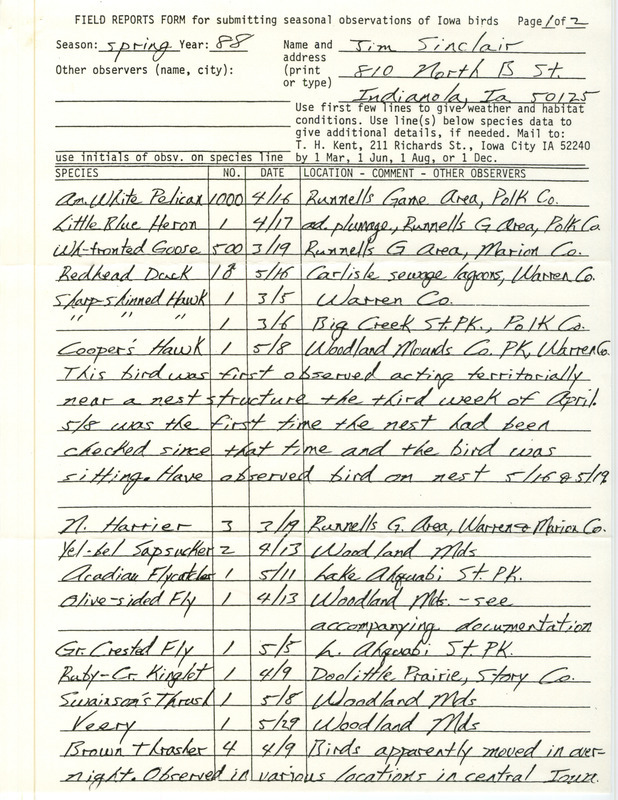 FIELD REPORTS FORM for submitting seasonal observations of Iowa birds Page 1 of 2
Season: spring Year: 88 Name and address (print or type) Jim Sinclair
810 North B St.
Indianola, Ia 50125
Other observers (name, city):
Use first few lines to give weather and habitat
conditions. Use line(s) below species data to
give additional details, if needed. Mail to:
T. H. Kent, 211 Richards St., Iowa City IA 52240
by 1 Mar, 1 Jun, 1 Aug, or 1 Dec.
use initials of obsv. on species line
SPECIES NO. DATE LOCATION - COMMENT - OTHER OBSERVERS
Am. White Pelican 1000 4/16 Runnells Game Area, Polk Co.
Little Blue Heron 1 4/17 ad. plumage, Runnells G Area, Polk Co.
Wh-fronted Goose 500 3/19 Runnells G Area, Marion Co.
Redhead Duck 1♂ 5/16 Carlisle sewage lagoons, Warren Co.
Sharp-shinned Hawk 1 3/5 Warren Co.
" " " 1 3/6 Big Creek St. PK., Polk Co.
Cooper's Hawk 1 5/8 Woodland Mounds Co. PK, Warren Co.
This bird was first observed acting territorially
near a nest structure the third week of April.
5/8 was the first time the nest had been
checked since that time and the bird was
sitting. Have observed bird on nest 5/16 & 5/19
N. Harrier 3 3/19 Runnells G. Area, Warren & Marion Co.
Yel-bel Sapsucker 2 4/13 Woodland Mds
Acadian Flycatcher 1 5/11 Lake Ahquabi St. PK.
Olive-sided Fly 1 4/13 Woodland Mds. - see
accompanying documentation
Gr. Crested Fly 1 5/5 L. Ahquabi St. PK.
Ruby-Cr. Kinglet 1 4/9 Doolittle Prairie, Story Co.
Swainson's Thrush 1 5/8 Woodland Mds
Veery 1 5/29 Woodland Mds
Brown Thrasher 4 4/9 Birds apparently moved in over-
night. Observed in various locations in central Iowa.